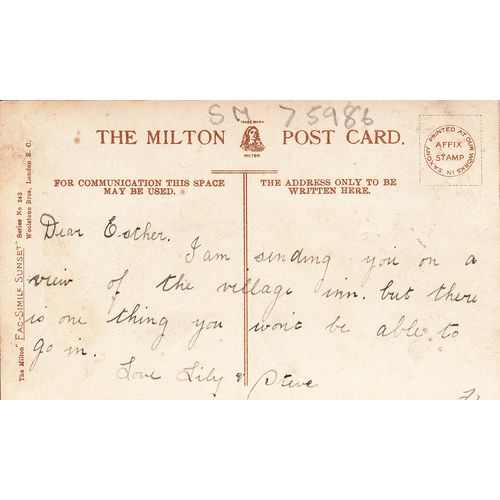 SM 75986
TRADE MARK
MILTON
THE MILTON POST CARD.
PRINTED AT OUR WORKS IN SAXONY
AFFIX
STAMP
FOR COMMUNICATION THIS SPACE
MAY BE USED.
THE ADDRESS ONLY TO BE
WRITTEN HERE.
The Milton "FAC-SIMILE SUNSET" Series No 343
Woolstone Bros, London E. C.
Dear Esther.
I am sending you on a
view of the village inn. but there
is one thing you won't be able to
go in.
Love Lily & Steve